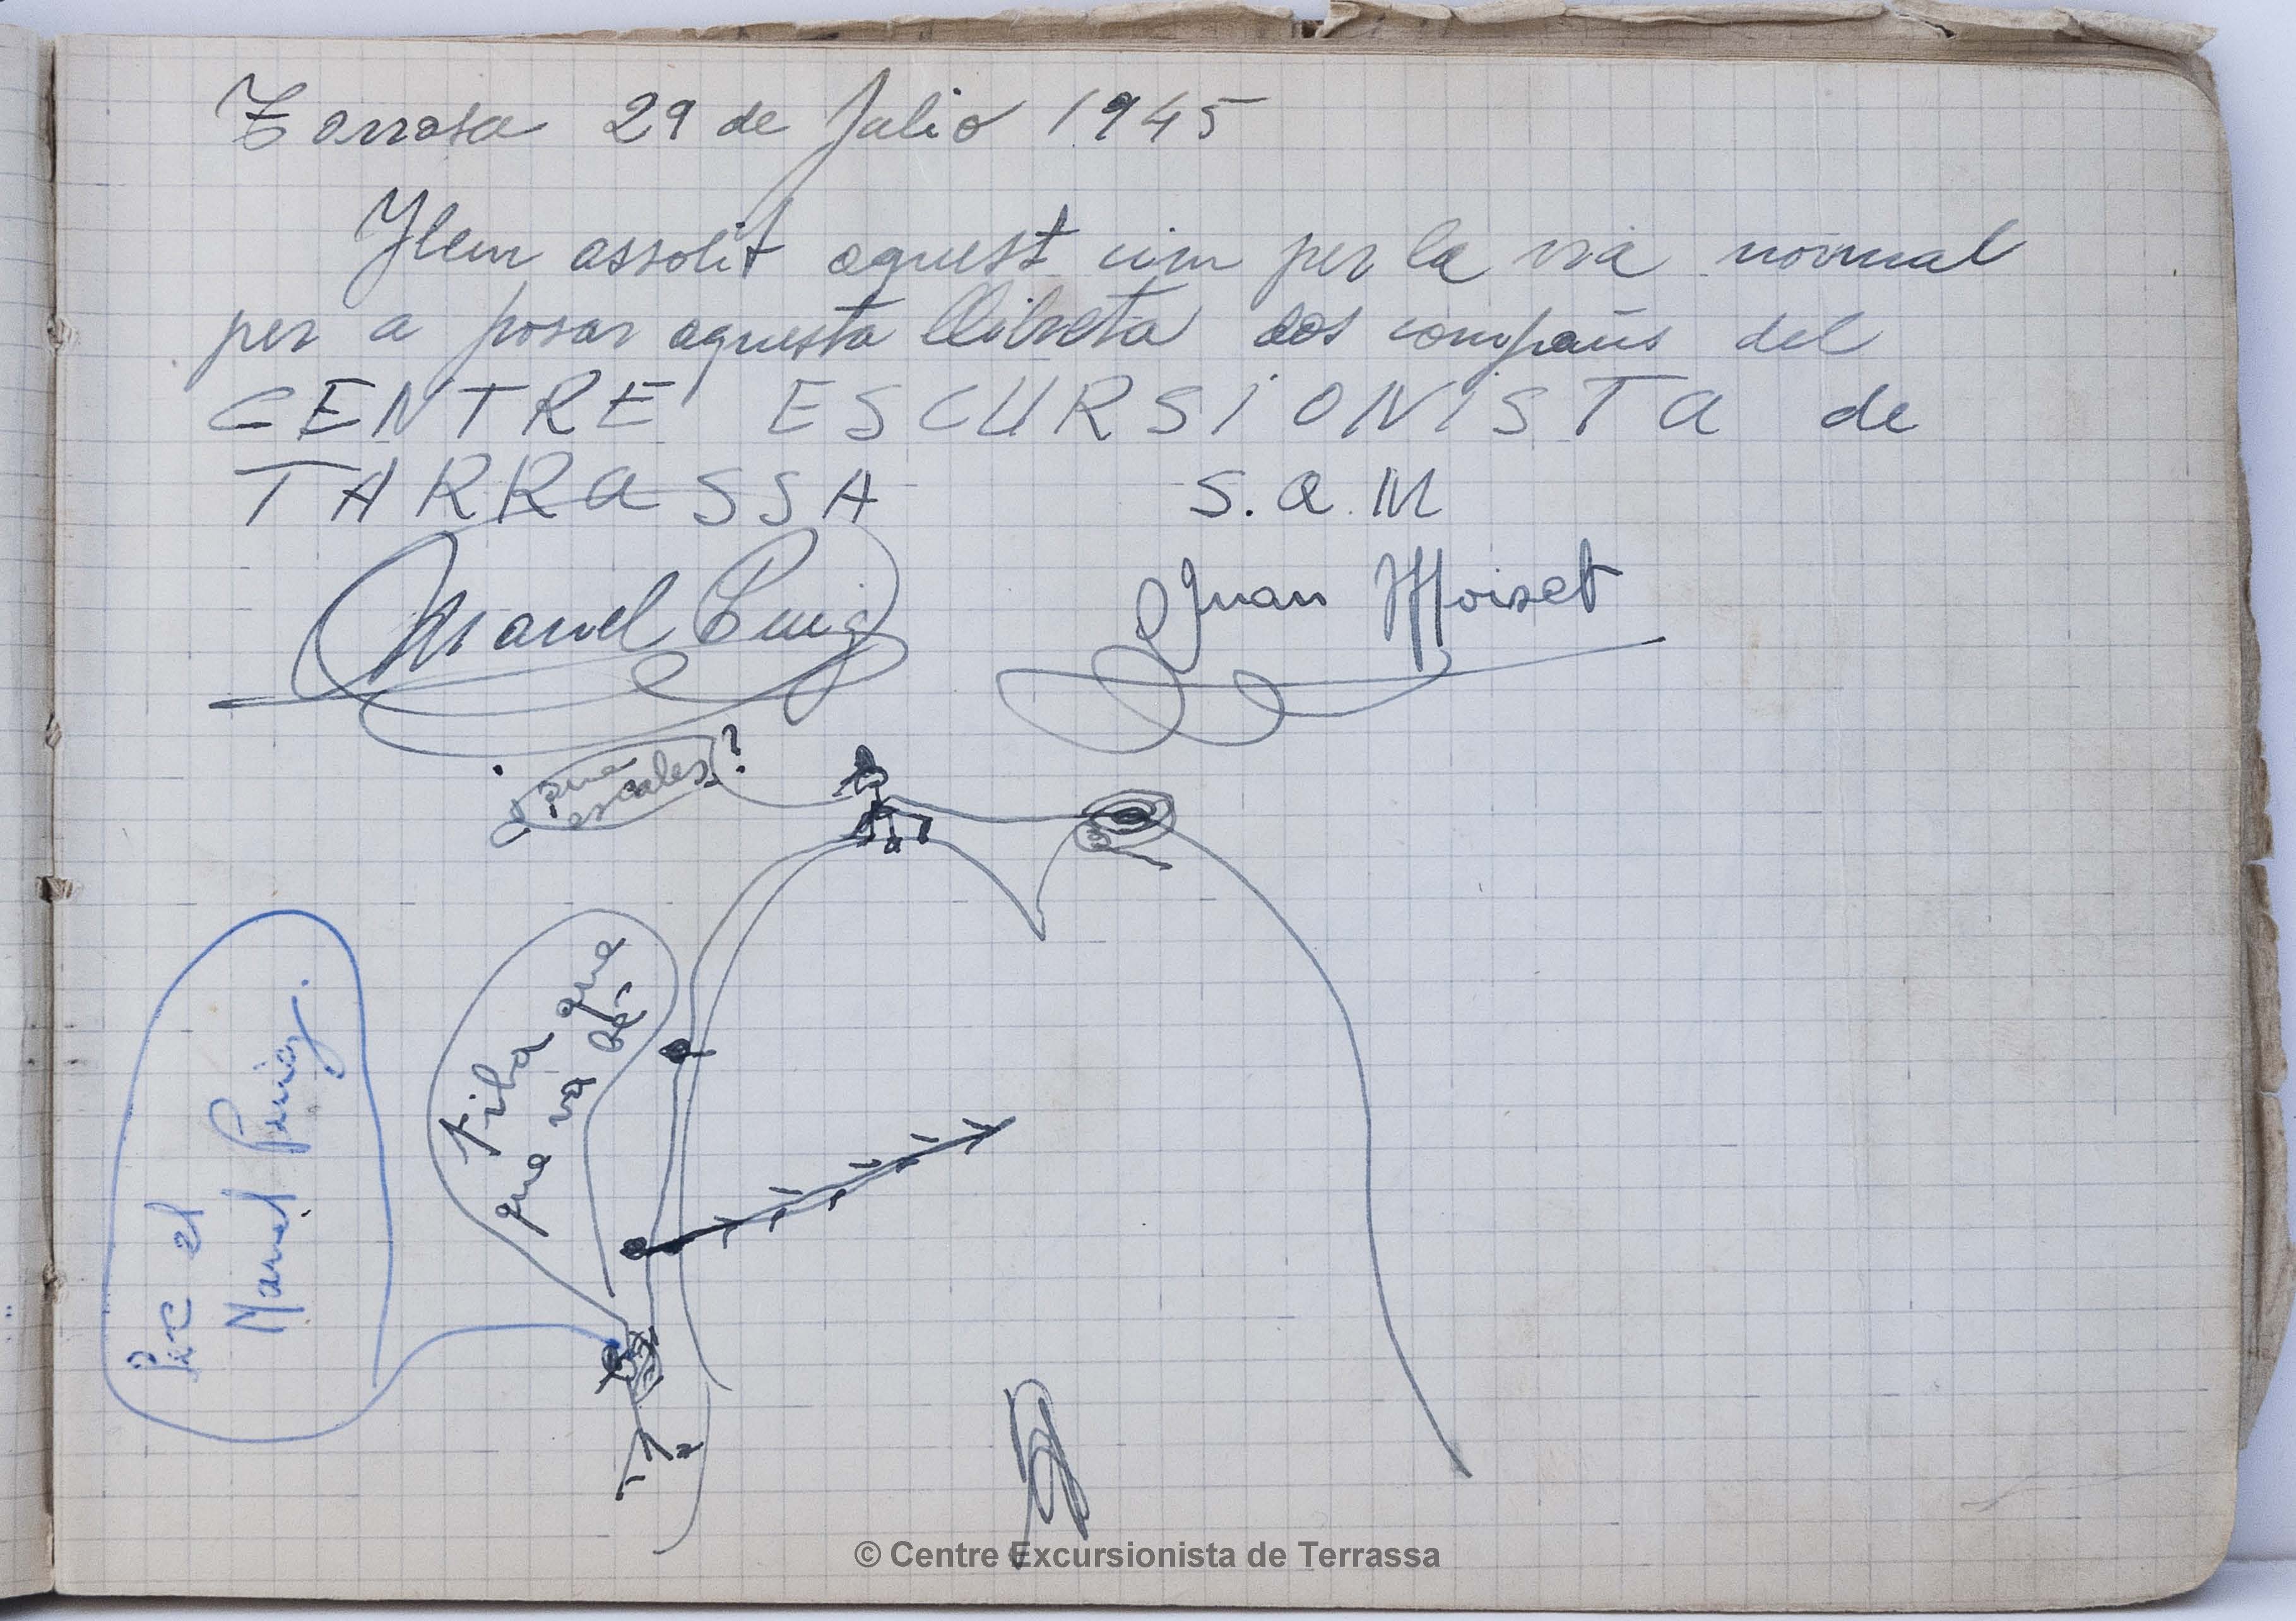 Tarrasa 29 de Julio 1945
Hem assolit aquest cim per la via normal
per a posar aquesta llibreta dos companis del
CENTRE ESCURSIONISTA de
TARRASSA S.A.M
Manel Puig Juan Moiset
que
escales?
Tiba que
que va bé
Sóc el
Manel Puig.
© Centre Excursionista de Terrassa